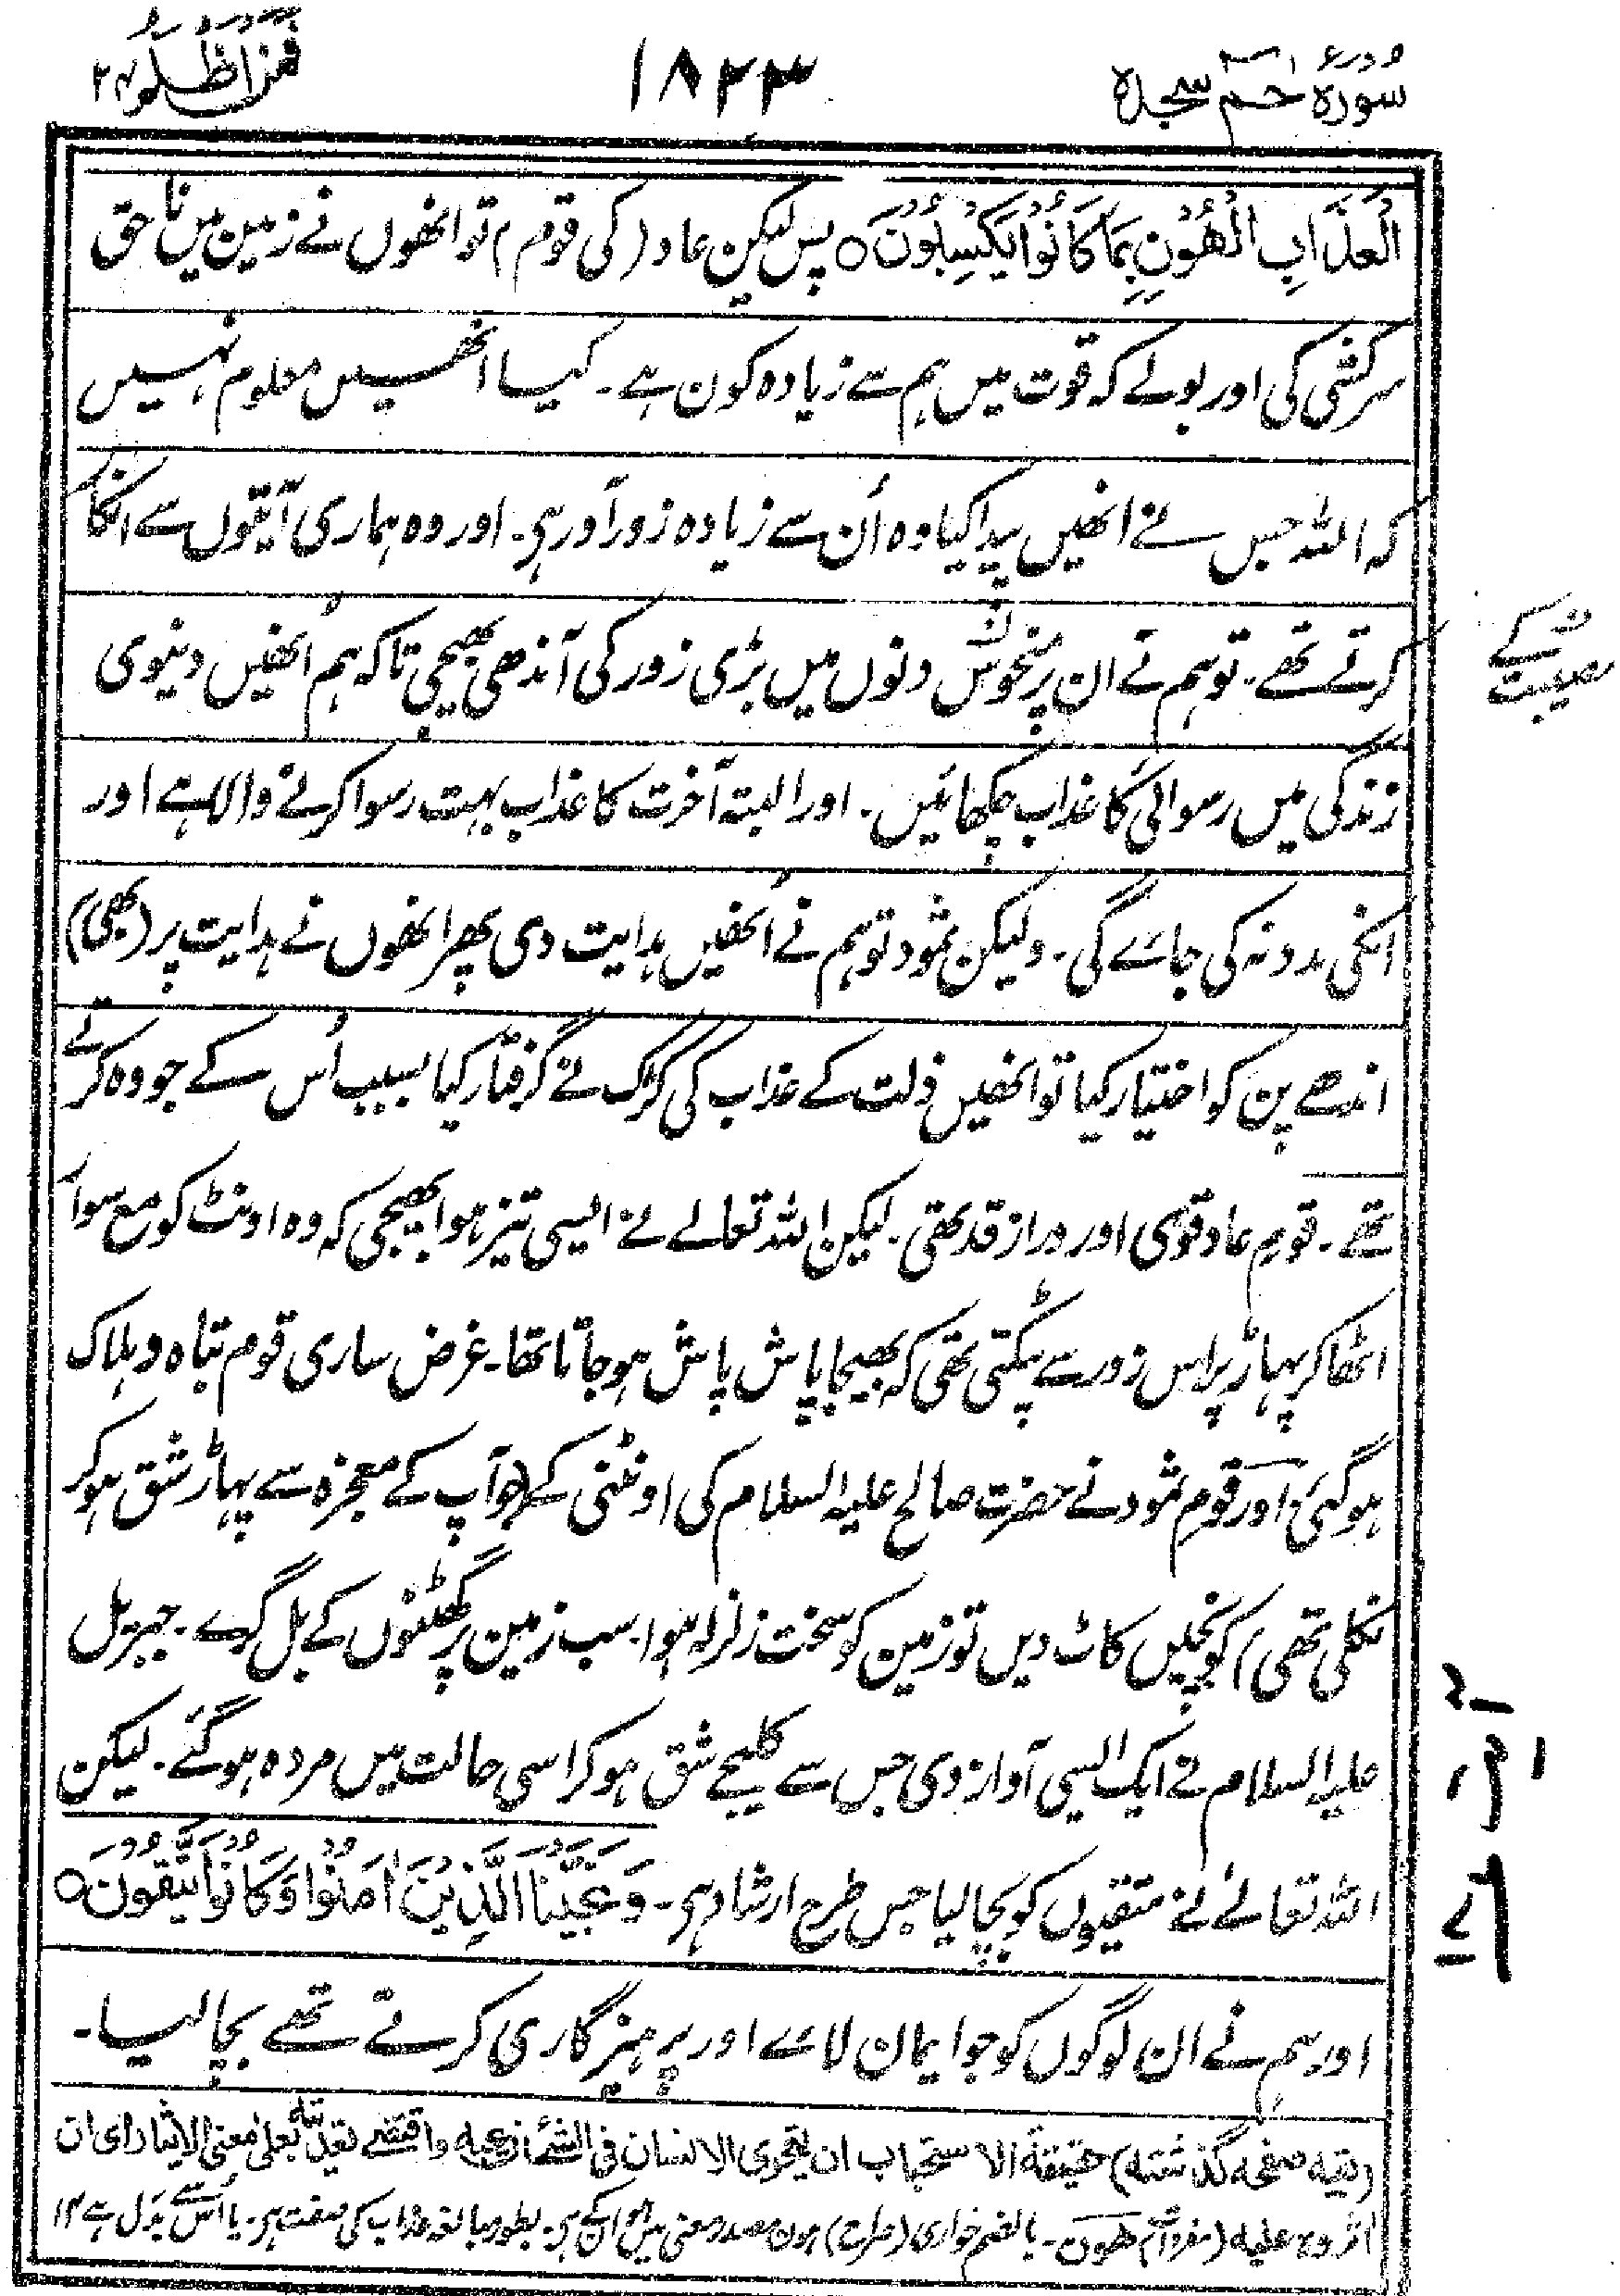 سورہ حٰمٓ سجدہ
۱۸۲۳
فَمَنْ اَظْلَمُ ۲۴
الْعَذَابِ الْهُوْنِ بِمَا كَانُوْا يَكْسِبُوْنَ ○ پس لیکن عاد (کی قوم) تو انھوں نے زمین میں ناحق
سرکشی کی اور بولے کہ قوت میں ہم سے زیادہ کون ہے۔ کیا انھیں معلوم نہیں
کہ اللہ جس نے انھیں پیدا کیا وہ اُن سے زیادہ زور آور ہی۔ اور وہ ہماری آیتوں سے انکار
کرتے تھے۔ تو ہم نے ان پر منحوس دنوں میں بڑی زور کی آندھی بھیجی تاکہ ہم اُنھیں دنیوی
مصیبت کے
زندگی میں رسوائی کا عذاب چکھائیں۔ اور البتہ آخرت کا عذاب بہت رسوا کرنے والا ہے اور
انکی مدد نہ کی جائے گی۔ ولیکن ثمود تو ہم نے اُنھیں ہدایت دی پھر انھوں نے ہدایت پر (بھی)
اندھے پن کو اختیار کیا تو انھیں ذلت کے عذاب کی کڑک نے گرفتار کیا بسبب اُس کے جو وہ کرتے
تھے۔ قوم عاد قوی اور دراز قد تھی۔ لیکن اللہ تعالے نے ایسی تیز ہوا بھیجی کہ وہ اونٹ کو مع سوار
اٹھا کر پہاڑ پر اس زور سے پٹکتی تھی کہ بھیجا پاش پاش ہو جاتا تھا۔ غرض ساری قوم تباہ و ہلاک
ہو گئی، اور قوم ثمود نے حضرت صالح علیہ السلام کی اونٹنی کے (جو آپ کے معجزہ سے پہاڑ شق ہو کر
نکلی تھی) کونچیں کاٹ دیں تو زمین کو سخت زلزلہ ہوا۔ سب زمین پر گھٹنوں کے بل گرے۔ جبریل
علیہ السلام نے ایک ایسی آواز دی جس سے کلیجے شق ہو کر اسی حالت میں مردہ ہو گئے۔ لیکن
اللہ تعالےٰ نے متقیوں کو بچا لیا جس طرح ارشاد ہی۔ وَ نَجَّيْنَا الَّذِيْنَ اٰمَنُوْا وَ كَانُوْا يَتَّقُوْنَ ○
اور ہم نے ان لوگوں کو جو ایمان لائے اور پرہیز گاری کرتے تھے بچا لیا۔
(بقیہ صفحہ گذشتہ) حقیقۃ الاستحباب ان یتحری الانسان فی الشئ ان یحبہ واقتضے تعدیتہ بعلیٰ معنی الایثار ای ان
اثروہ علیہ (مفردات) ھون۔ بالضم خواری (صراح) ہون مصدر معنی میں ہوان کے ہی۔ بطور مبالغہ عذاب کی صفت ہی۔ یا اُس سے بدل ہے ۱۲